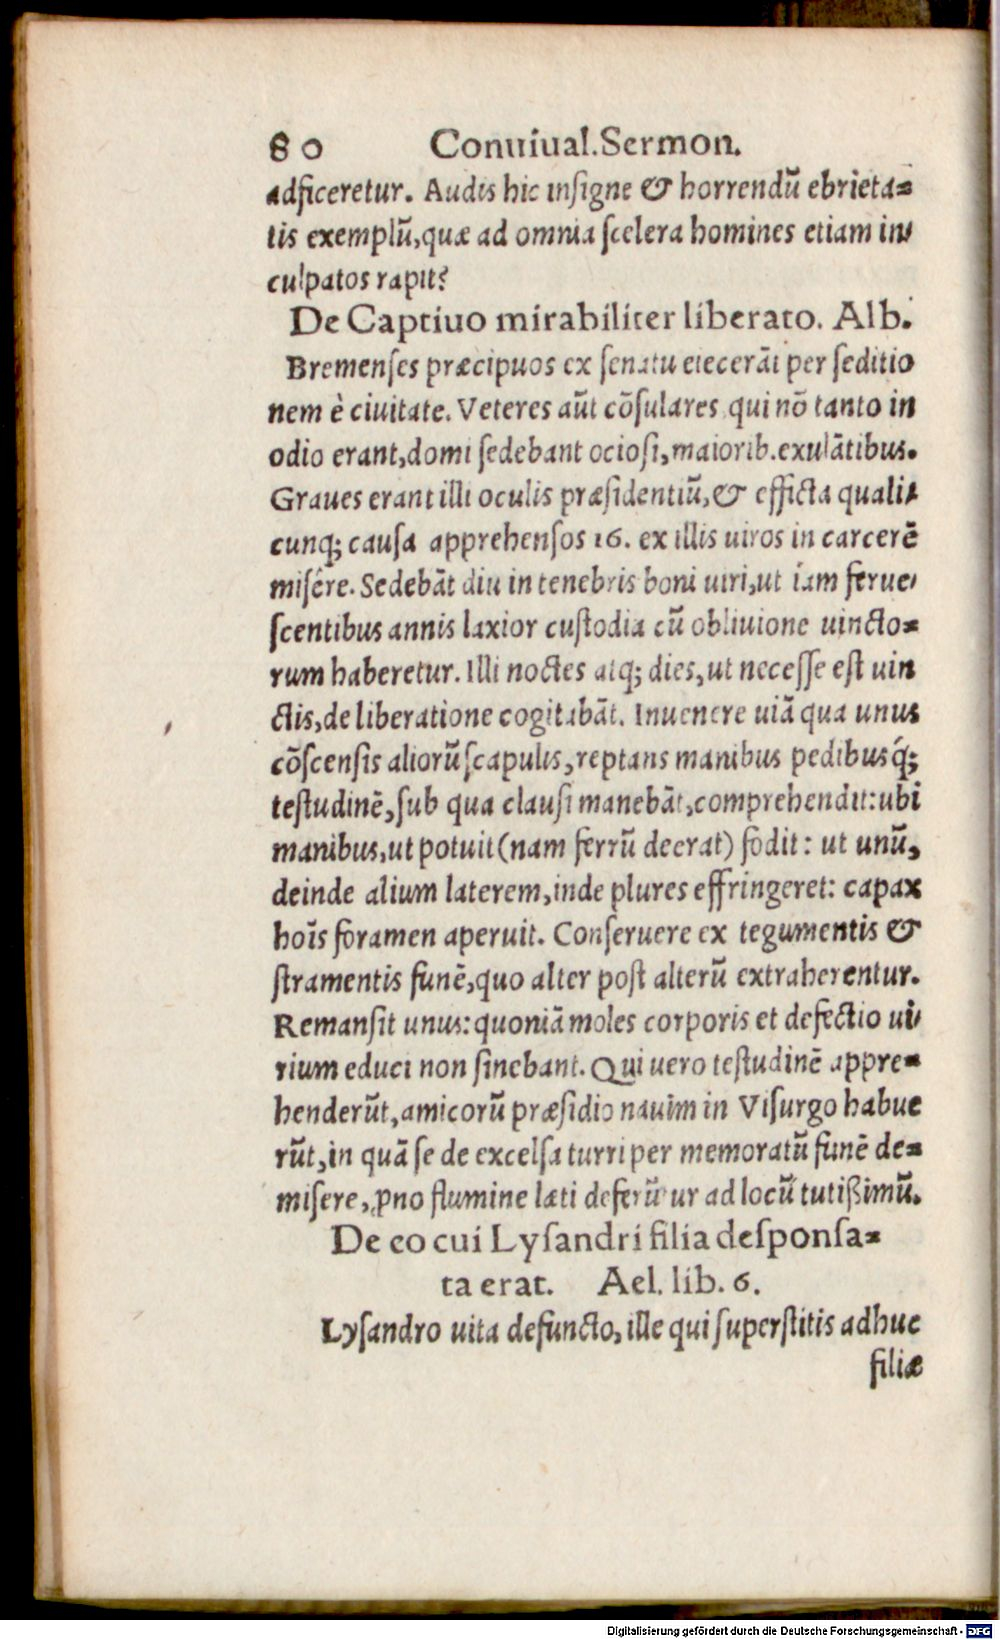 80 Conuiual.Sermon.
adficeretur. Audis hic insigne & horrendũ ebrieta-
tis exemplũ,quæ ad omnia scelera homines etiam in-
culpatos rapit?
De Captiuo mirabiliter liberato. Alb.
Bremenses præcipuos ex senatu eiecerãt per seditio
nem è ciuitate. Veteres aũt cõsulares qui nõ tanto in
odio erant,domi sedebant ociosi,maiorib.exulãtibus.
Graues erant illi oculis præsidentiũ,& efficta quali-
cunq; causa apprehensos 16. ex illis uiros in carcerẽ
misêre. Sedebãt diu in tenebris boni uiri,ut iam ferue-
scentibus annis laxior custodia cũ obliuione uincto-
rum haberetur. Illi noctes atq; dies,ut necesse est uin
ctis,de liberatione cogitabãt. Inuenere uiã qua unus
cõscensis aliorũ scapulis,reptans manibus pedibusq́;
testudinẽ,sub qua clausi manebãt,comprehendit:ubi
manibus,ut potuit(nam ferrũ deerat) fodit: ut unũ,
deinde alium laterem,inde plures effringeret: capax
hoĩs foramen aperuit. Conseruere ex tegumentis &
stramentis funẽ,quo alter post alterũ extraherentur.
Remansit unus:quoniã moles corporis et defectio ui-
rium educi non sinebant. Qui uero testudinẽ appre-
henderũt,amicorũ præsidio nauim in Visurgo habue
rũt,in quã se de excelsa turri per memoratũ funẽ de-
misere,ꝓno flumine læti deferũtur ad locũ tutißimũ.
De eo cui Lysandri filia desponsa-
ta erat. Ael. lib. 6.
Lysandro uita defuncto,ille qui superstitis adhuc
filiæ
Digitalisierung gefördert durch die Deutsche Forschungsgemeinschaft - DFG